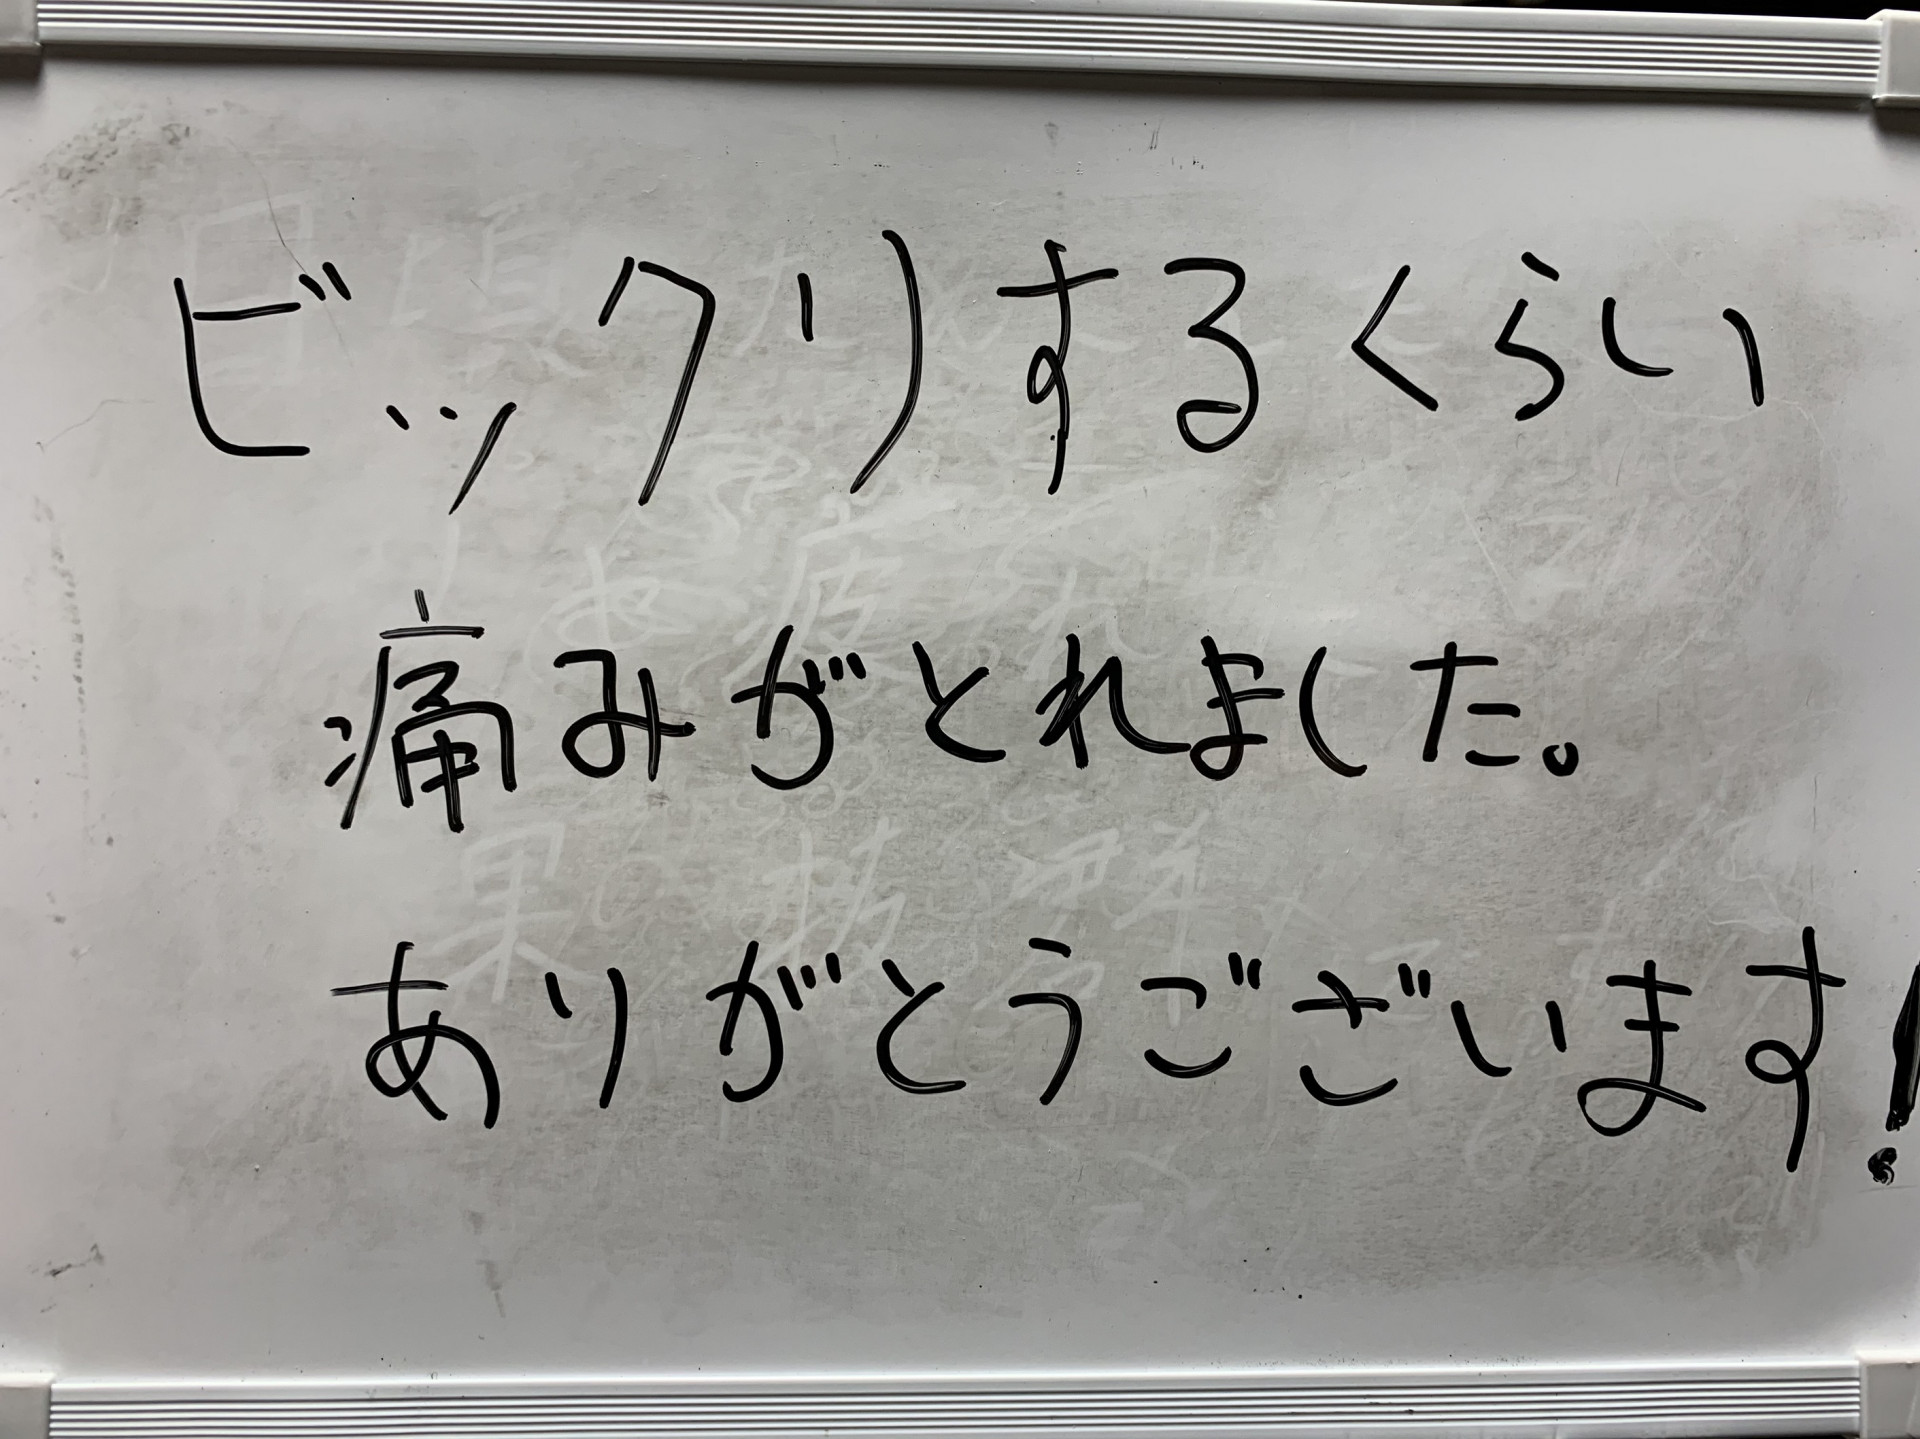 ビックリするくらい
痛みがとれました。
ありがとうございます!